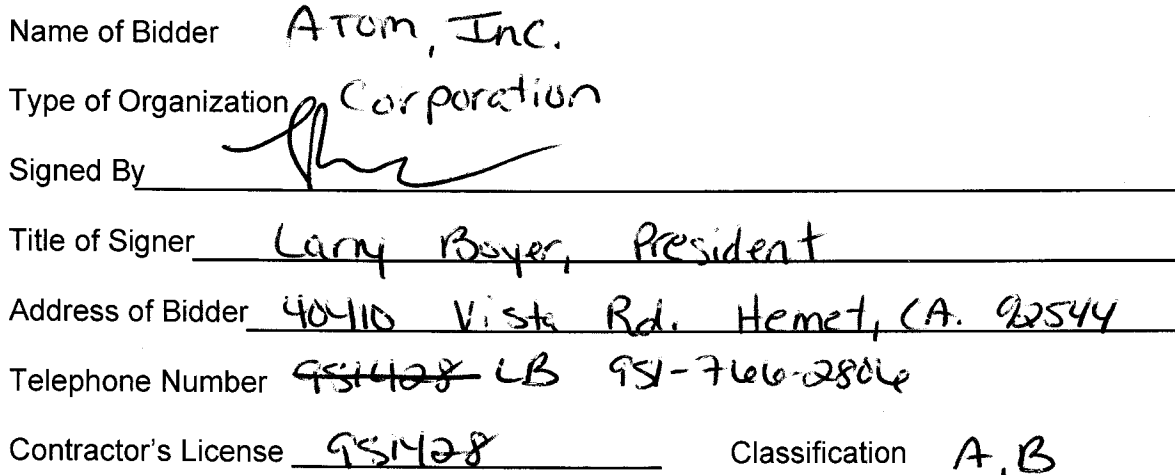 Name of Bidder Atom, Inc.
Type of Organization Corporation
Signed By
Title of Signer Larry Boyer, President
Address of Bidder 40410 Vista Rd. Hemet, CA. 92544
Telephone Number 951428 LB 951-766-2806
Contractor's License 951428 Classification A, B